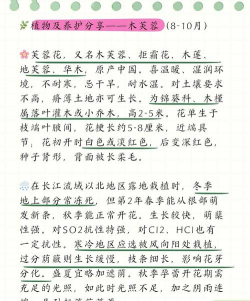 植物及养护分享——木芙蓉（8-10月）
芙蓉花，又名木芙蓉、拒霜花、木莲、
地芙蓉、华木，原产中国。喜温暖、湿润环
境，不耐寒，忌干旱，耐水湿。对土壤要求
不高，瘠薄土地亦可生长。为锦葵科、木槿
属落叶灌木或小乔木，高2-5米。花单生于
枝端叶腋间，花梗长约5-8厘米，近端具
节，花初开时白色或淡红色，后变深红色，
种子肾形，背面被长柔毛。
在长江流域以北地区露地栽植时，冬季
地上部分常冻死，但第2年春季能从根部萌
发新条，秋季能正常开花。生长较快，萌蘖
性强。对SO2抗性特强，对Cl2、HCl也有
一定抗性。寒冷地区应选被风向阳处栽植，
过分荫蔽则生长缓慢，枝条细长，影响花芽
分化。盛夏宜略加遮荫。秋季孕蕾开花期需
充足的光照，如此时光照不足，加之阴雨连